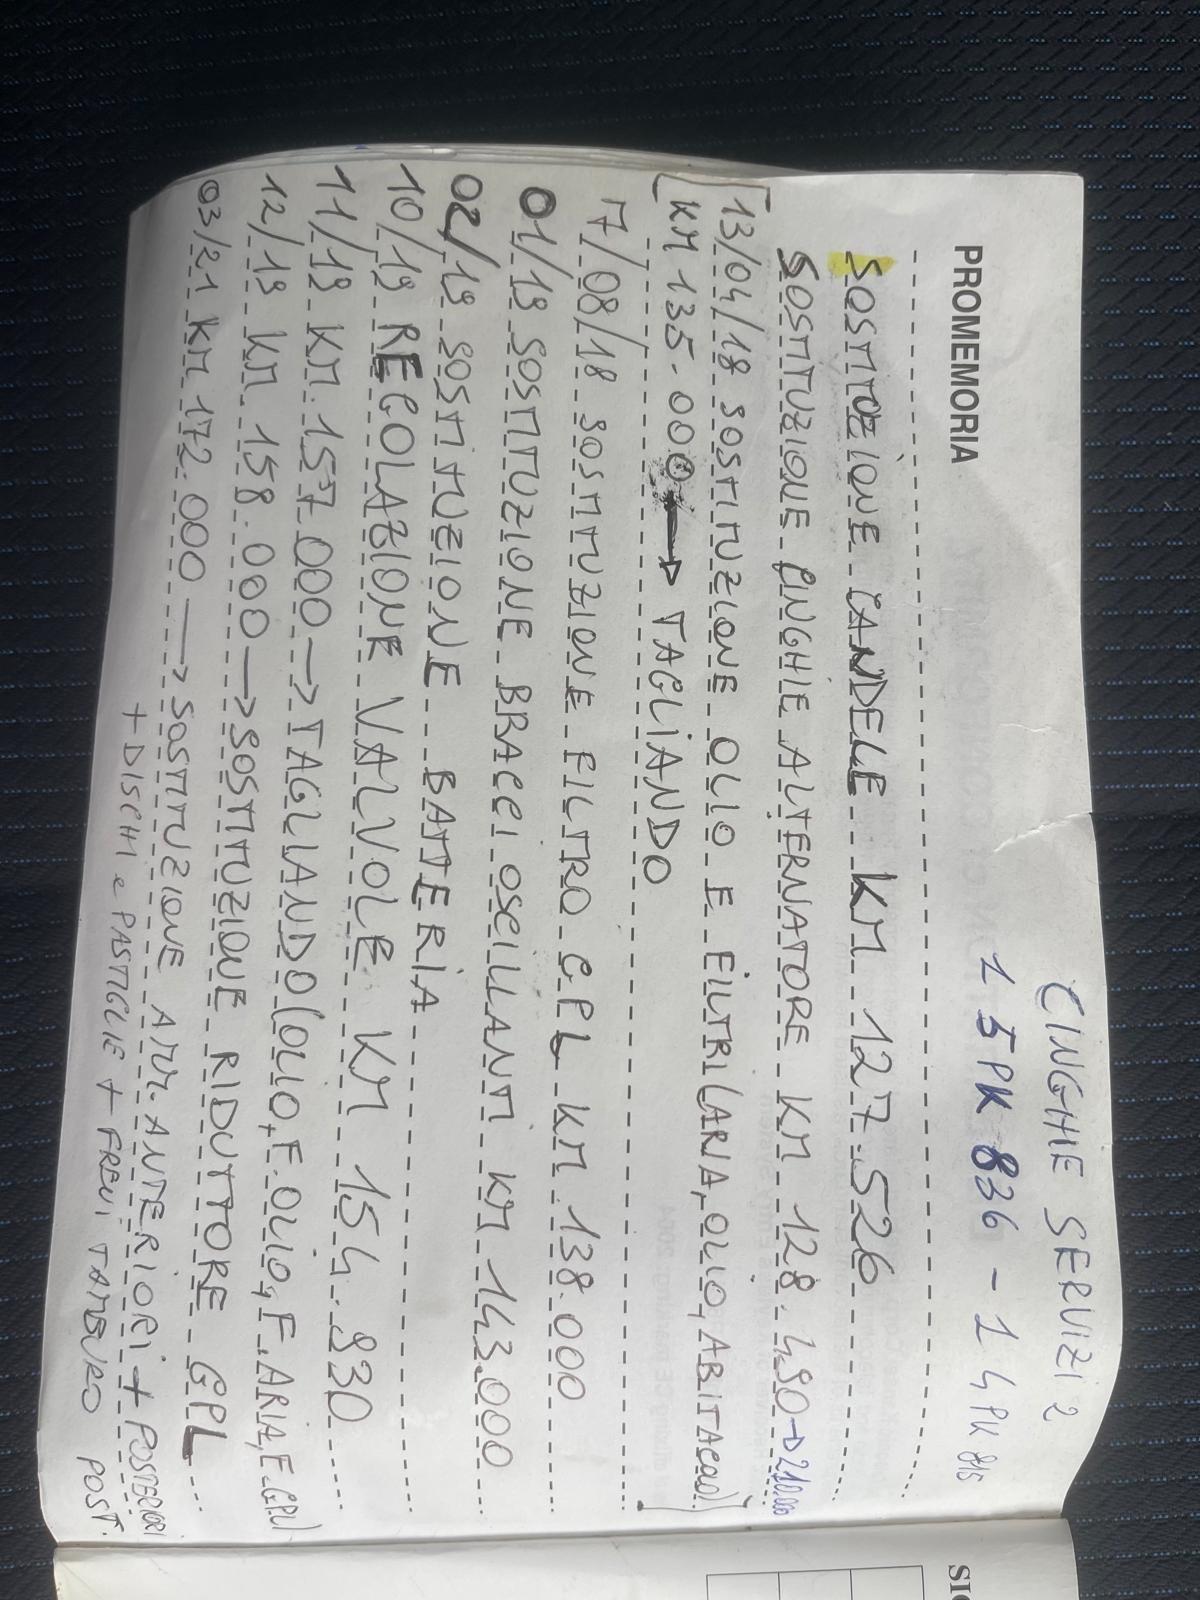 CINGHIE SERVIZI 2
1 5PK 836 - 1 4PK 815
PROMEMORIA
SOSTITUZIONE CANDELE KM 127.526
SOSTITUZIONE CINGHIE ALTERNATORE KM 128.490 → 210.000
[13/04/18 SOSTITUZIONE OLIO E FILTRI (ARIA, OLIO, ABITACOLO)]
KM 135.000 → TAGLIANDO
17/08/18 SOSTITUZIONE FILTRO GPL KM 138.000
01/19 SOSTITUZIONE BRACCI OSCILLANTI KM 143.000
02/19 SOSTITUZIONE BATTERIA
10/19 REGOLAZIONE VALVOLE KM 154.930
11/19 KM.157.000 → TAGLIANDO (OLIO, F.OLIO, F.ARIA, F.GPL)
12/19 KM 158.000 → SOSTITUZIONE RIDUTTORE GPL
03/21 KM 172.000 → SOSTITUZIONE AMM.ANTERIORI + POSTERIORI
+ DISCHI e PASTIGLIE + FRENI TAMBURO POST.
SIG